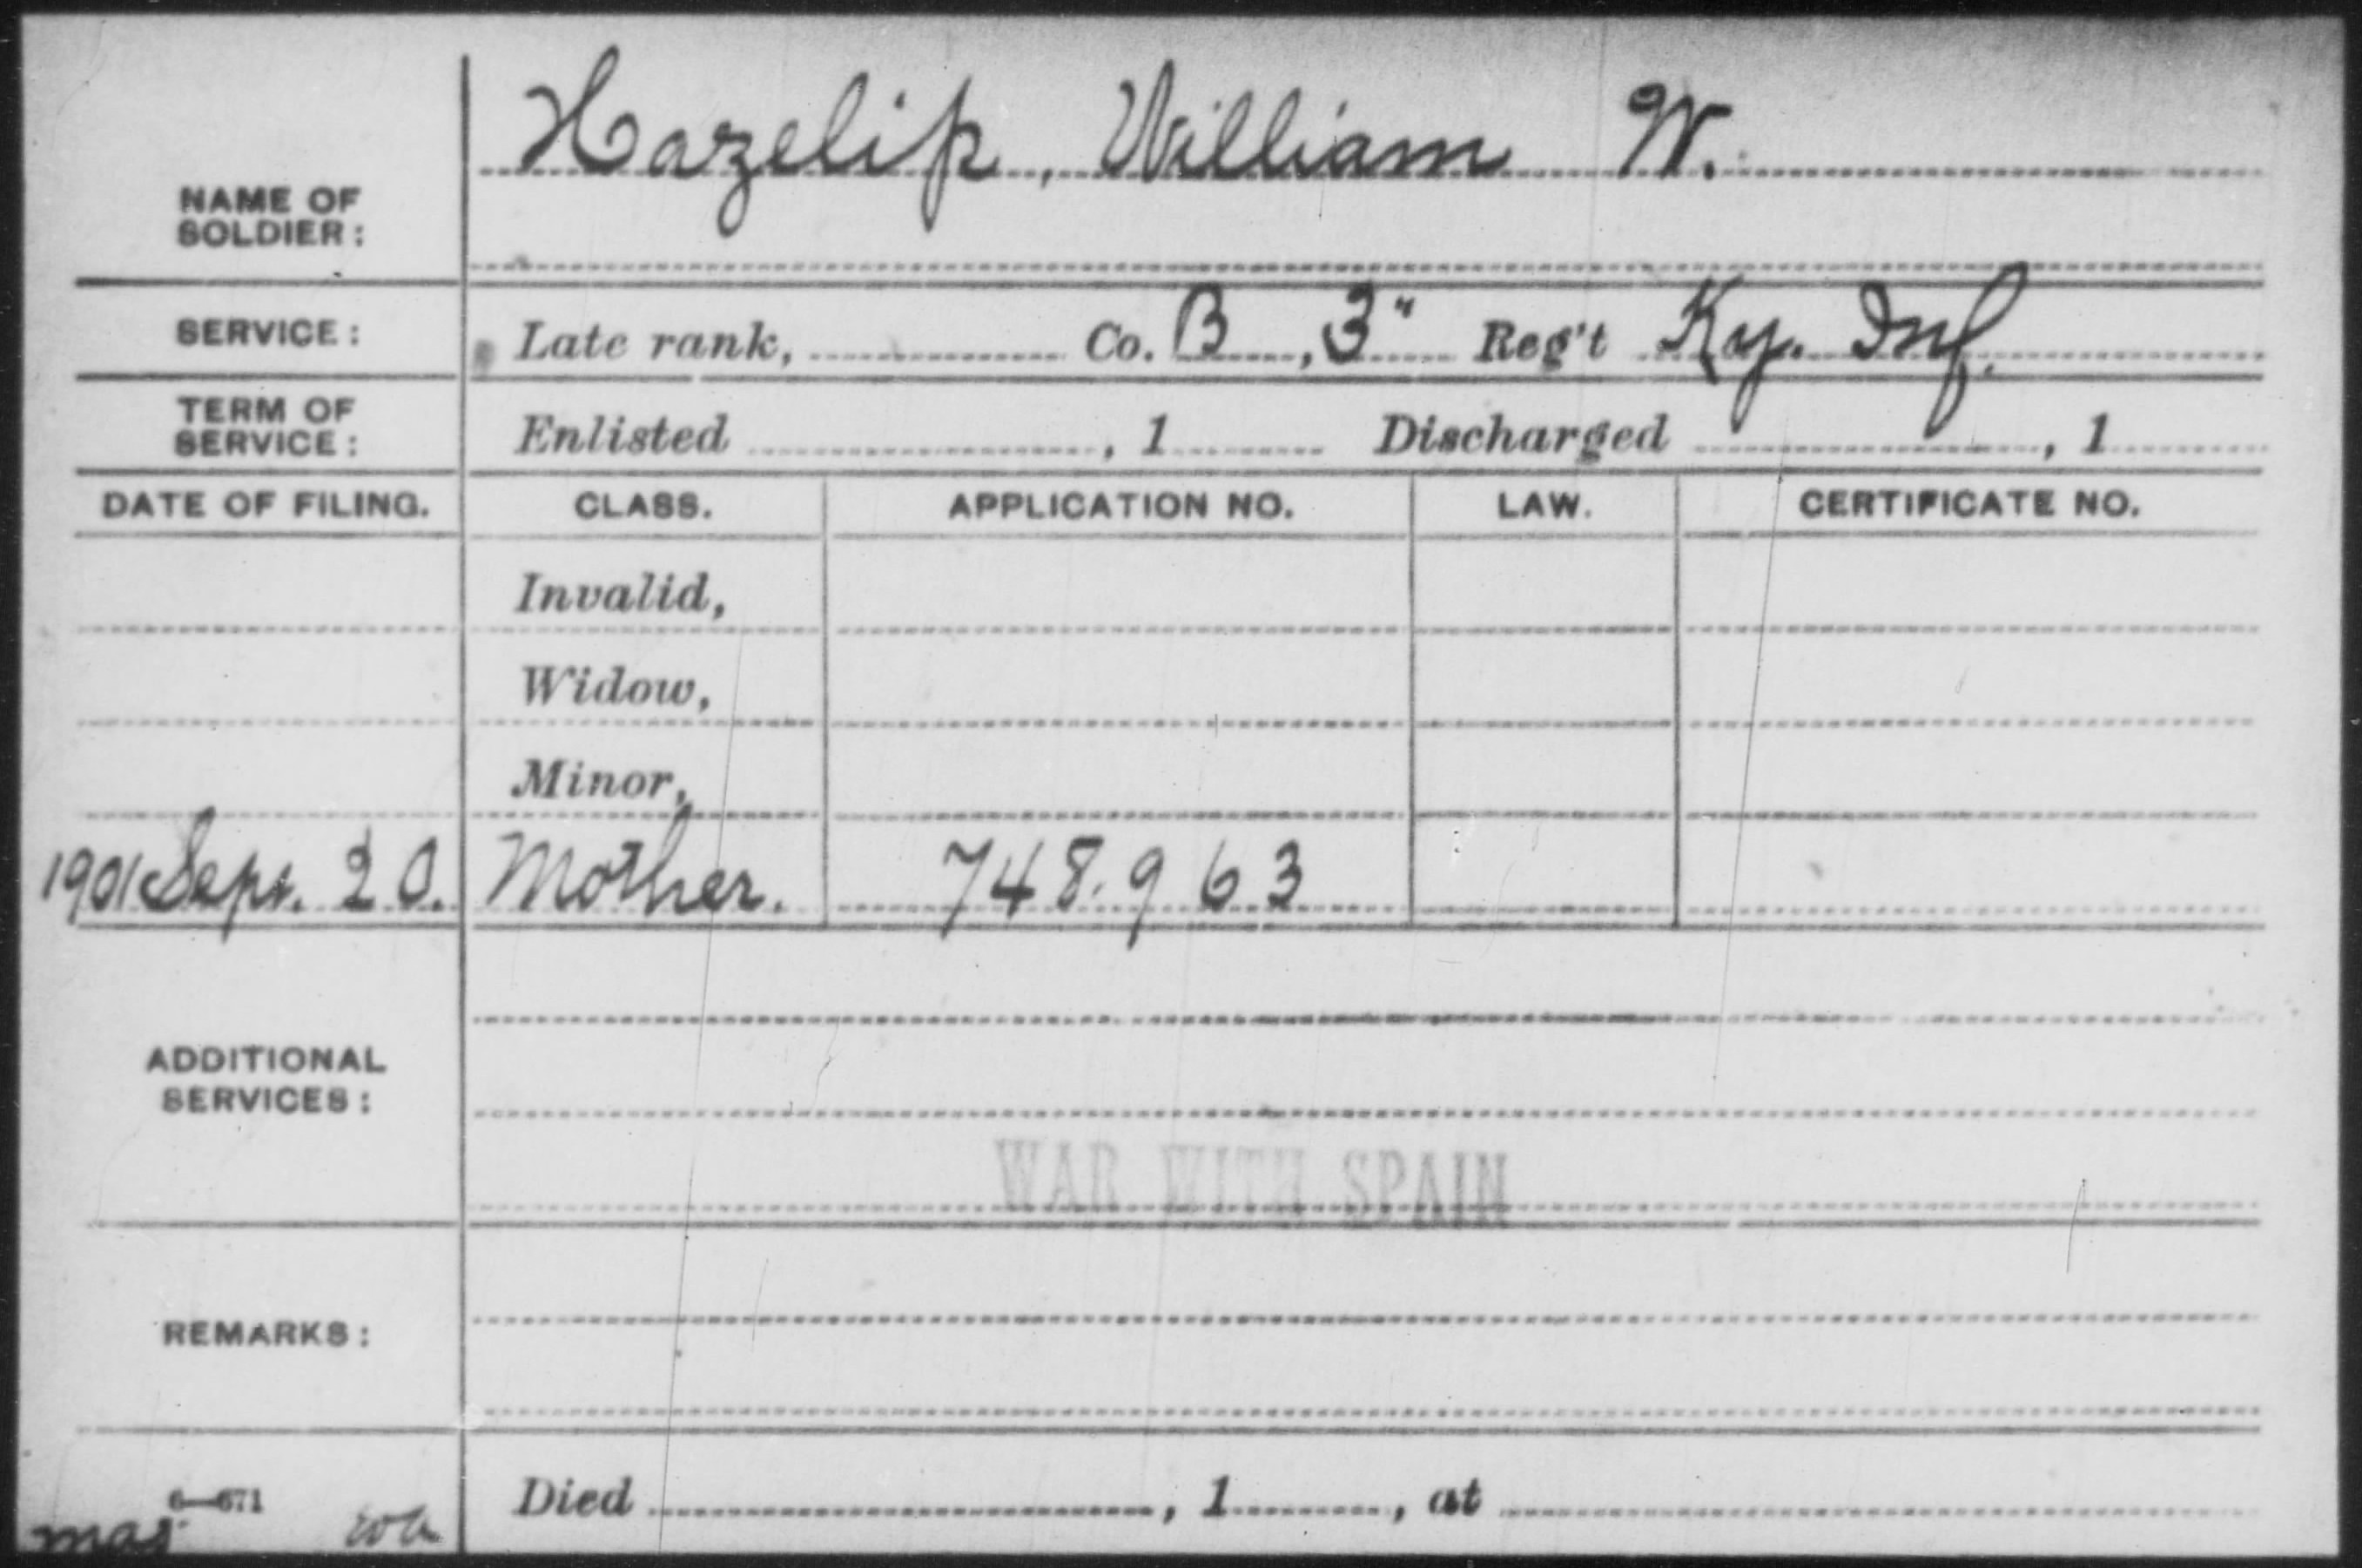 NAME OF
SOLDIER:
Hazelip, William W.
SERVICE:
Late rank, Co. B, 3" Reg't Ky. Inf.
TERM OF
SERVICE:
Enlisted , 1 Discharged , 1
DATE OF FILING. CLASS. APPLICATION NO. LAW. CERTIFICATE NO.
Invalid,
Widow,
Minor,
1901 Sept. 20. Mother. 748.963
ADDITIONAL
SERVICES:
WAR WITH SPAIN
REMARKS:
6—671
Died , 1 , at